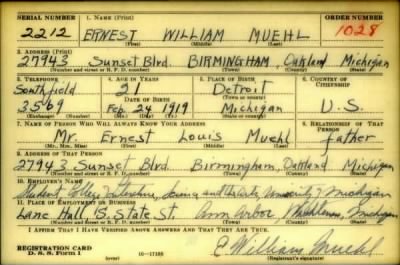 SERIAL NUMBER 1. NAME (Print) ORDER NUMBER
2212 ERNEST WILLIAM MUEHL 1028
(First) (Middle) (Last)
3. ADDRESS (Print)
27943 Sunset Blvd. BIRMINGHAM, Oakland Michigan
(Number and street or R. F. D. number) (Town) (County) (State)
5. TELEPHONE 4. AGE IN YEARS 5. PLACE OF BIRTH 6. COUNTRY OF CITIZENSHIP
Southfield 21 Detroit
DATE OF BIRTH (Town or county)
3569 Feb. 24 1919 Michigan U.S.
(Exchange) (Number) (Mo.) (Day) (Yr.) (State or country)
7. NAME OF PERSON WHO WILL ALWAYS KNOW YOUR ADDRESS 8. RELATIONSHIP OF THAT PERSON
Mr. Ernest Louis Muehl father
(Mr., Mrs., Miss) (First) (Middle) (Last)
9. ADDRESS OF THAT PERSON
27943 Sunset Blvd. Birmingham, Oakland Michigan
(Number and street or R. F. D. number) (Town) (County) (State)
10. EMPLOYER'S NAME
Student, College Literature, Science and the Arts, University of Michigan
11. PLACE OF EMPLOYMENT OR BUSINESS
Lane Hall, S. State St. Ann Arbor, Washtenaw, Michigan
(Number and street or R. F. D. number) (Town) (County) (State)
I AFFIRM THAT I HAVE VERIFIED ABOVE ANSWERS AND THAT THEY ARE TRUE.
REGISTRATION CARD
D. S. S. Form 1 (over) 16—17105 E William Muehl
(Registrant's signature)